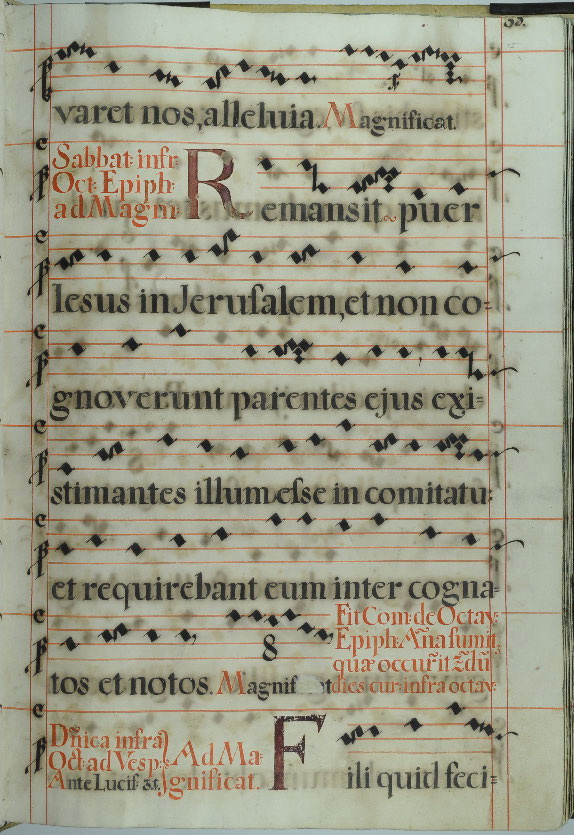 30.
varet nos, alleluia. Magnificat.
Sabbat: infr
Oct: Epiph:
ad Magni:
Remansit puer
Iesus in Jeruſalem, et non co=
gnoverunt parentes ejus exi=
stimantes illum eſse in comitatu:
et requirebant eum inter cogna=
tos et notos. Magnif
8
Fit Com: de Octav:
Epiph: Aña sumit,
quæ occurit
dies cur: infra octav:
Dñica infra
Oct: ad Vesp:
Ante Lucif:
Ad Ma=
gnificat.
Fili quid feci=